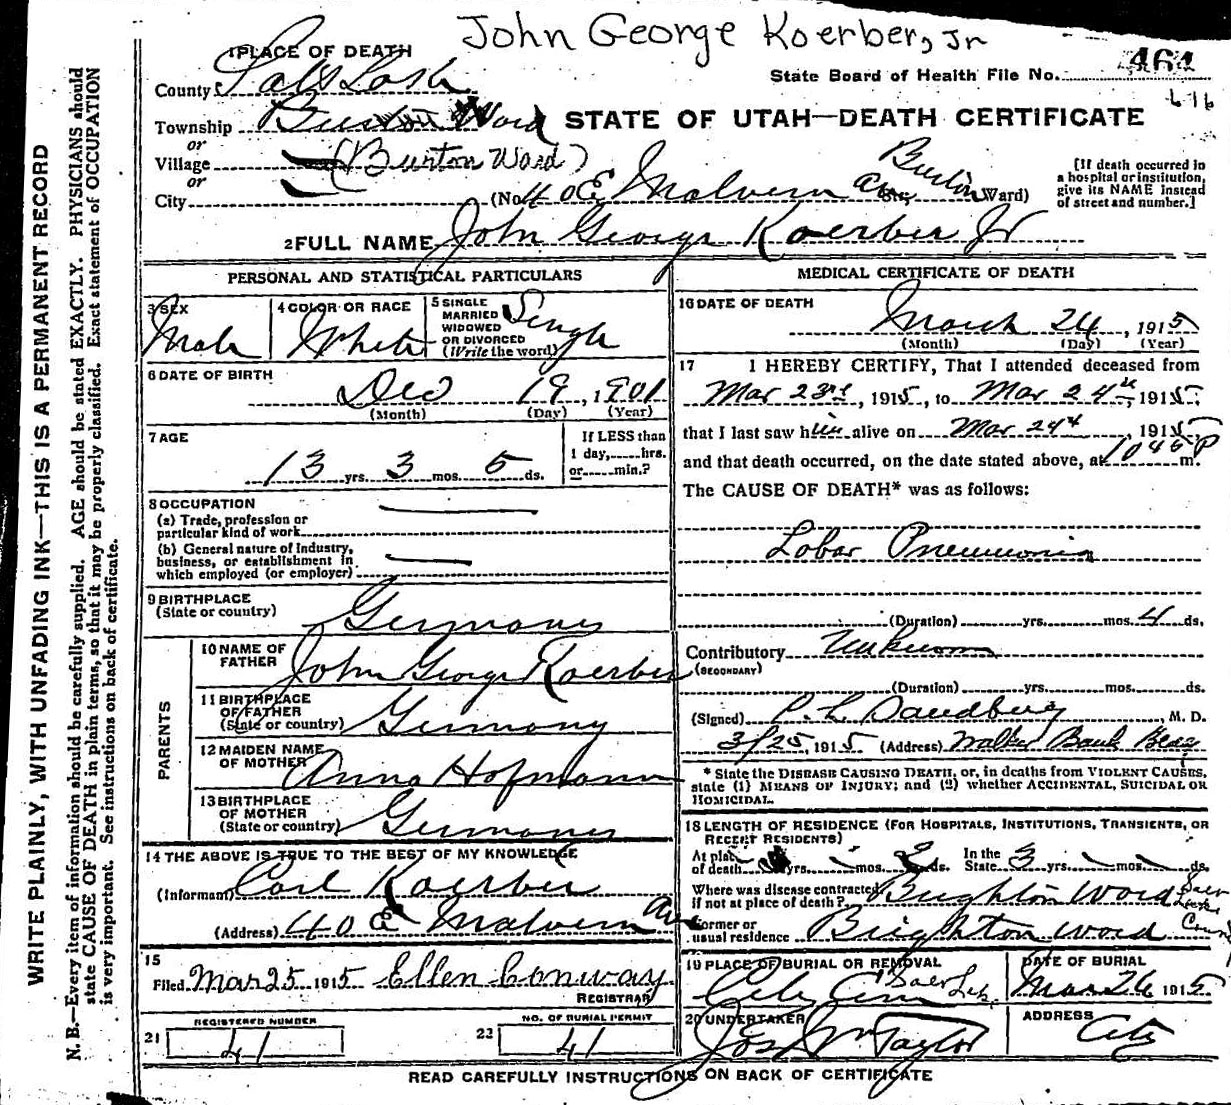 John George Koerber, Jr
1 PLACE OF DEATH
State Board of Health File No. 464
County Salt Lake
616
Township Burton Ward
STATE OF UTAH—DEATH CERTIFICATE
or
Village (Burton Ward)
or
City (No. 40 E Malvern Ave St.; Burton Ward)
[If death occurred in
a hospital or institution,
give its NAME instead
of street and number.]
2 FULL NAME John George Koerber Jr
PERSONAL AND STATISTICAL PARTICULARS
3 SEX
Male
4 COLOR OR RACE
White
5 SINGLE
MARRIED
WIDOWED
OR DIVORCED
(Write the word)
Single
6 DATE OF BIRTH
Dec 19, 1901
(Month) (Day) (Year)
7 AGE
13 yrs. 3 mos. 5 ds.
If LESS than
1 day,......hrs.
or......min.?
8 OCCUPATION
(a) Trade, profession or
particular kind of work
(b) General nature of industry,
business, or establishment in
which employed (or employer)
9 BIRTHPLACE
(State or country)
Germany
PARENTS
10 NAME OF
FATHER
John George Koerber
11 BIRTHPLACE
OF FATHER
(State or country)
Germany
12 MAIDEN NAME
OF MOTHER
Anna Hofmann
13 BIRTHPLACE
OF MOTHER
(State or country)
Germany
14 THE ABOVE IS TRUE TO THE BEST OF MY KNOWLEDGE
(Informant) Carl Koerber
(Address) 40 E Malvern Ave
15
Filed Mar 25 1915 Ellen Conway
REGISTRAR
REGISTERED NUMBER
21 41
NO. OF BURIAL PERMIT
22 41
MEDICAL CERTIFICATE OF DEATH
16 DATE OF DEATH
March 24, 1915
(Month) (Day) (Year)
17 I HEREBY CERTIFY, That I attended deceased from
Mar 23rd, 1915, to Mar 24th, 1915,
that I last saw him alive on Mar 24th, 1915
and that death occurred, on the date stated above, at 1045 P m.
The CAUSE OF DEATH* was as follows:
Lobar Pneumonia
(Duration) yrs. mos. 4 ds.
Contributory Unknown
(SECONDARY)
(Duration) yrs. mos. ds.
(Signed) P. L. Sandberg, M. D.
3/25, 1915 (Address) Walker Bank Bldg
* State the DISEASE CAUSING DEATH, or, in deaths from VIOLENT CAUSES,
state (1) MEANS OF INJURY; and (2) whether ACCIDENTAL, SUICIDAL OR
HOMICIDAL.
18 LENGTH OF RESIDENCE (FOR HOSPITALS, INSTITUTIONS, TRANSIENTS, OR
RECENT RESIDENTS)
At place
of death yrs. mos. 2 ds.
In the
State 3 yrs. mos. ds.
Where was disease contracted,
if not at place of death? Brighton Ward Salt Lake
Former or
usual residence Brighton Ward
19 PLACE OF BURIAL OR REMOVAL
City Cem Salt Lake
DATE OF BURIAL
Mar 26 1915
20 UNDERTAKER
Jos Wm Taylor
ADDRESS
City
READ CAREFULLY INSTRUCTIONS ON BACK OF CERTIFICATE
WRITE PLAINLY, WITH UNFADING INK—THIS IS A PERMANENT RECORD
N. B.—Every item of information should be carefully supplied. AGE should be stated EXACTLY. PHYSICIANS should
state CAUSE OF DEATH in plain terms, so that it may be properly classified. Exact statement of OCCUPATION
is very important. See instructions on back of certificate.